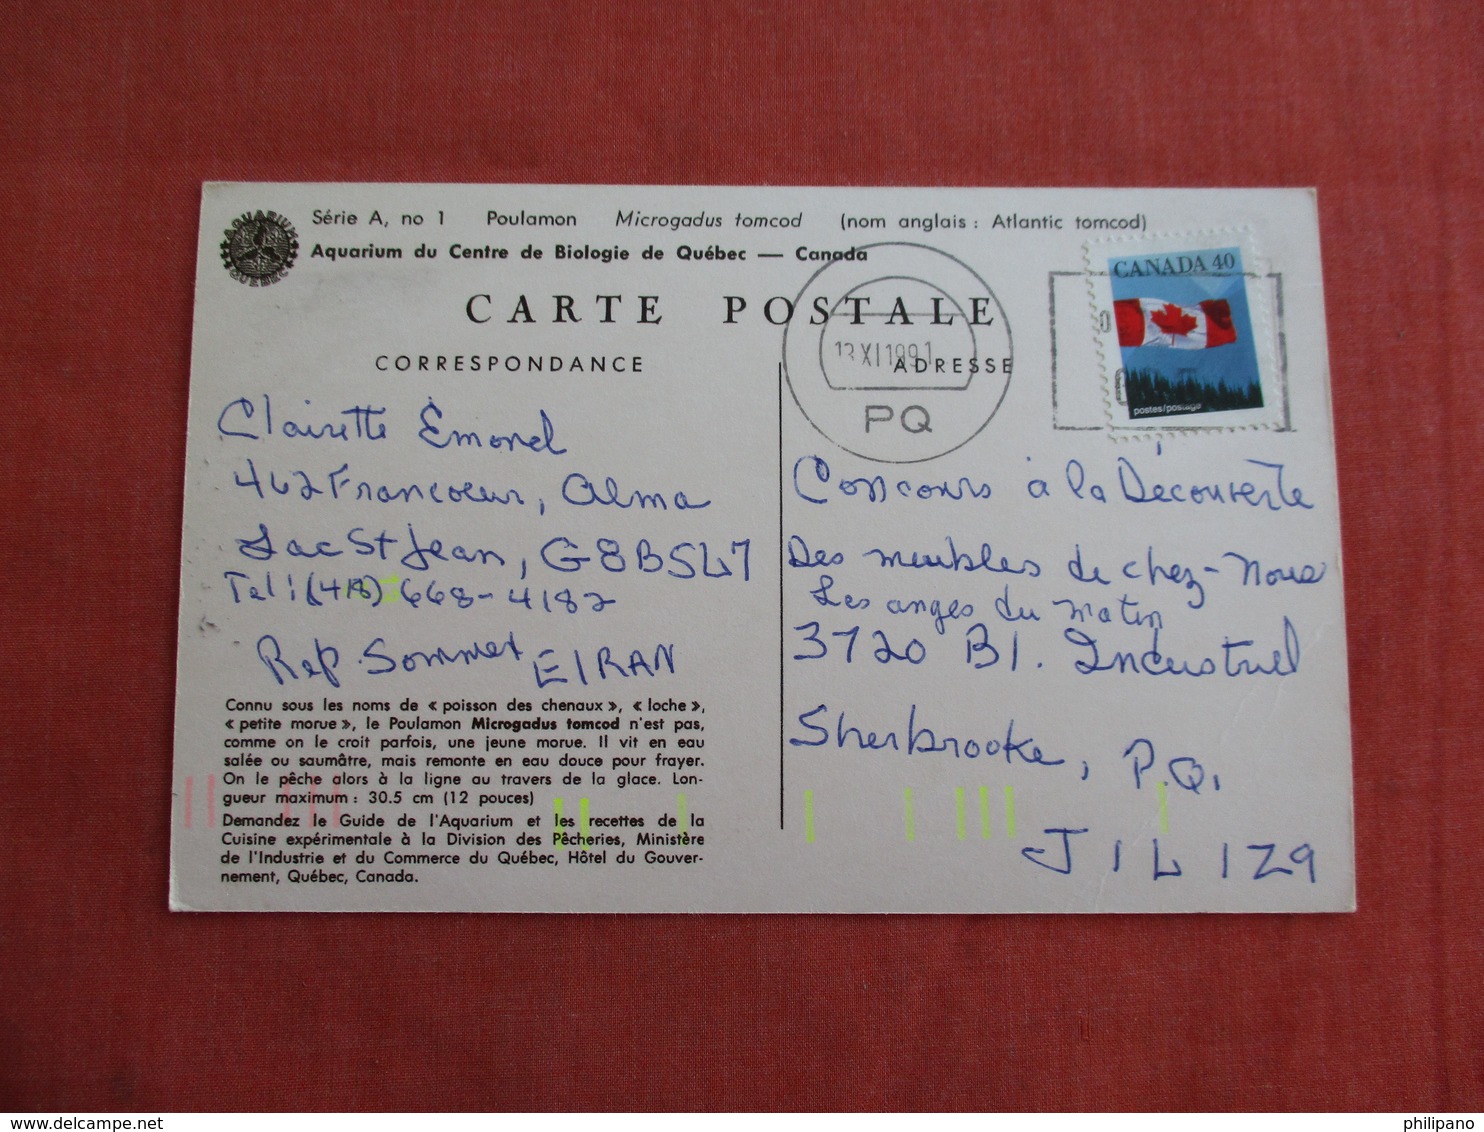 AQUARIUM
QUÉBEC
Série A, no 1 Poulamon Microgadus tomcod (nom anglais : Atlantic tomcod)
Aquarium du Centre de Biologie de Québec — Canada
CARTE POSTALE
CANADA 40
postes/postage
13 XI 1991
PQ
CORRESPONDANCE
Clairette Émond
462 Francoeur, Alma
Lac St Jean, G8B5L7
Tel : (418) 668-4182
Rep. Sommex EIRAN
Connu sous les noms de « poisson des chenaux », « loche »,
« petite morue », le Poulamon Microgadus tomcod n'est pas,
comme on le croit parfois, une jeune morue. Il vit en eau
salée ou saumâtre, mais remonte en eau douce pour frayer.
On le pêche alors à la ligne au travers de la glace. Lon-
gueur maximum : 30.5 cm (12 pouces)
Demandez le Guide de l'Aquarium et les recettes de la
Cuisine expérimentale à la Division des Pêcheries, Ministère
de l'Industrie et du Commerce du Québec, Hôtel du Gouver-
nement, Québec, Canada.
ADRESSE
Concours à la Découverte
Des meubles de chez-nous
Les anges du matin
3720 Bl. Industriel
Sherbrooke, P.Q.
J1L 1Z9
philipano